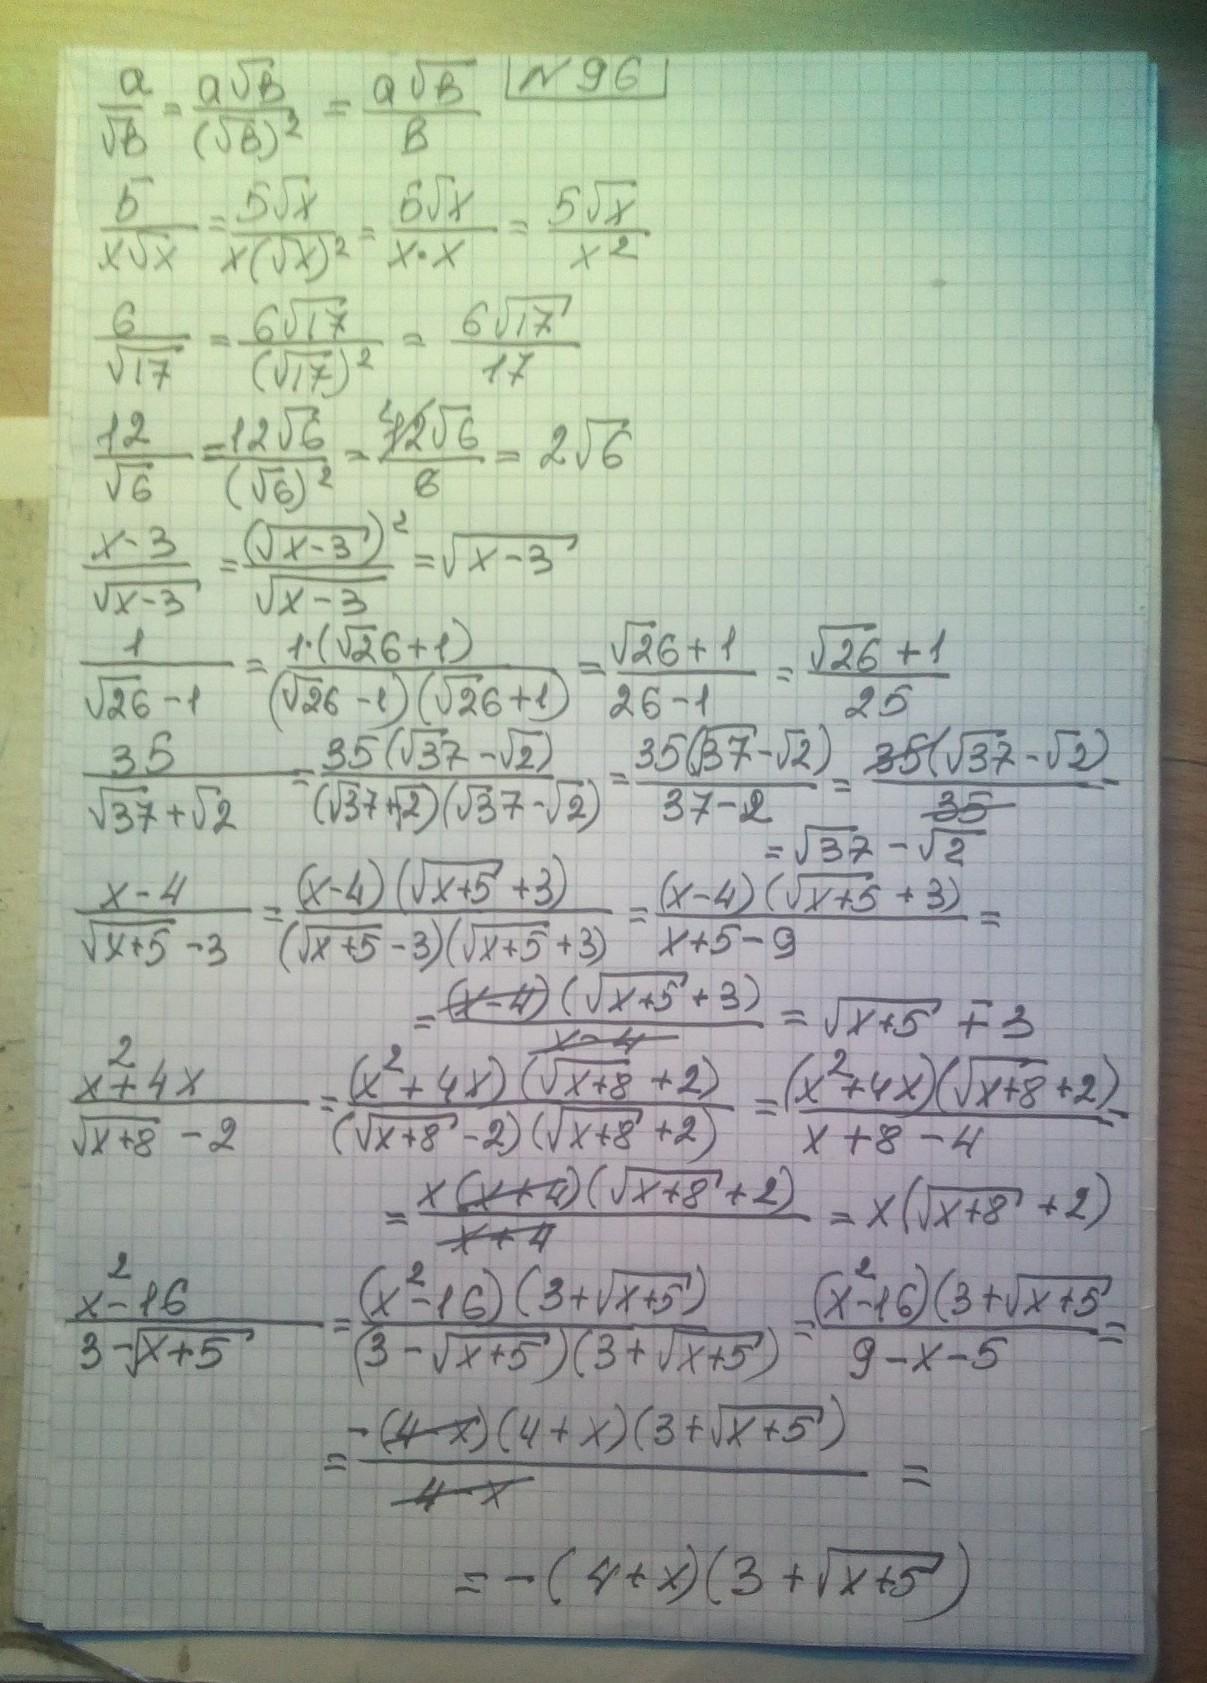 a/√b = a√b/(√b)² = a√b/b N96
5/x√x = 5√x/x(√x)² = 5√x/x·x = 5√x/x²
6/√17 = 6√17/(√17)² = 6√17/17
12/√6 = 12√6/(√6)² = 12√6/6 = 2√6
x-3/√(x-3) = (√(x-3))²/√(x-3) = √(x-3)
1/(√26-1) = 1·(√26+1)/(√26-1)(√26+1) = (√26+1)/(26-1) = (√26+1)/25
35/(√37+√2) = 35(√37-√2)/(√37+√2)(√37-√2) = 35(√37-√2)/(37-2) = 35(√37-√2)/35 =
= √37-√2
(x-4)/(√(x+5)-3) = (x-4)(√(x+5)+3)/(√(x+5)-3)(√(x+5)+3) = (x-4)(√(x+5)+3)/(x+5-9) =
= (x-4)(√(x+5)+3)/(x-4) = √(x+5)+3
(x²+4x)/(√(x+8)-2) = (x²+4x)(√(x+8)+2)/(√(x+8)-2)(√(x+8)+2) = (x²+4x)(√(x+8)+2)/(x+8-4) =
= x(x+4)(√(x+8)+2)/(x+4) = x(√(x+8)+2)
(x²-16)/(3-√(x+5)) = (x²-16)(3+√(x+5))/(3-√(x+5))(3+√(x+5)) = (x²-16)(3+√(x+5)/(9-x-5) =
= -(4-x)(4+x)(3+√(x+5))/(4-x) =
= -(4+x)(3+√(x+5))